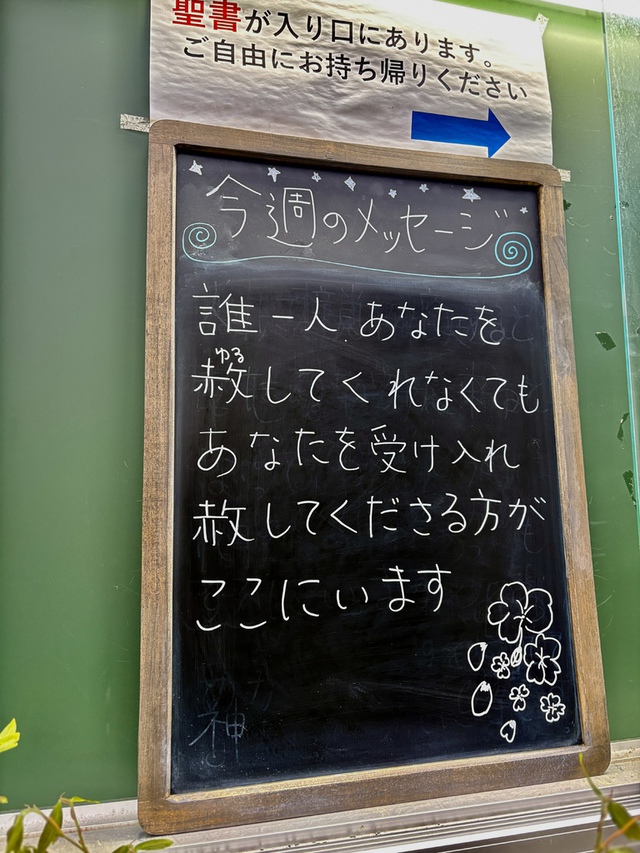 聖書が入り口にあります。
ご自由にお持ち帰りください
今週のメッセージ
誰一人、あなたを
ゆる
赦してくれなくても
あなたを受け入れ
赦してくださる方が
ここにいます
神